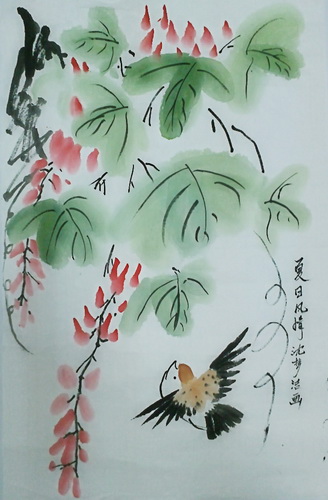 夏日风情沈梦洁画